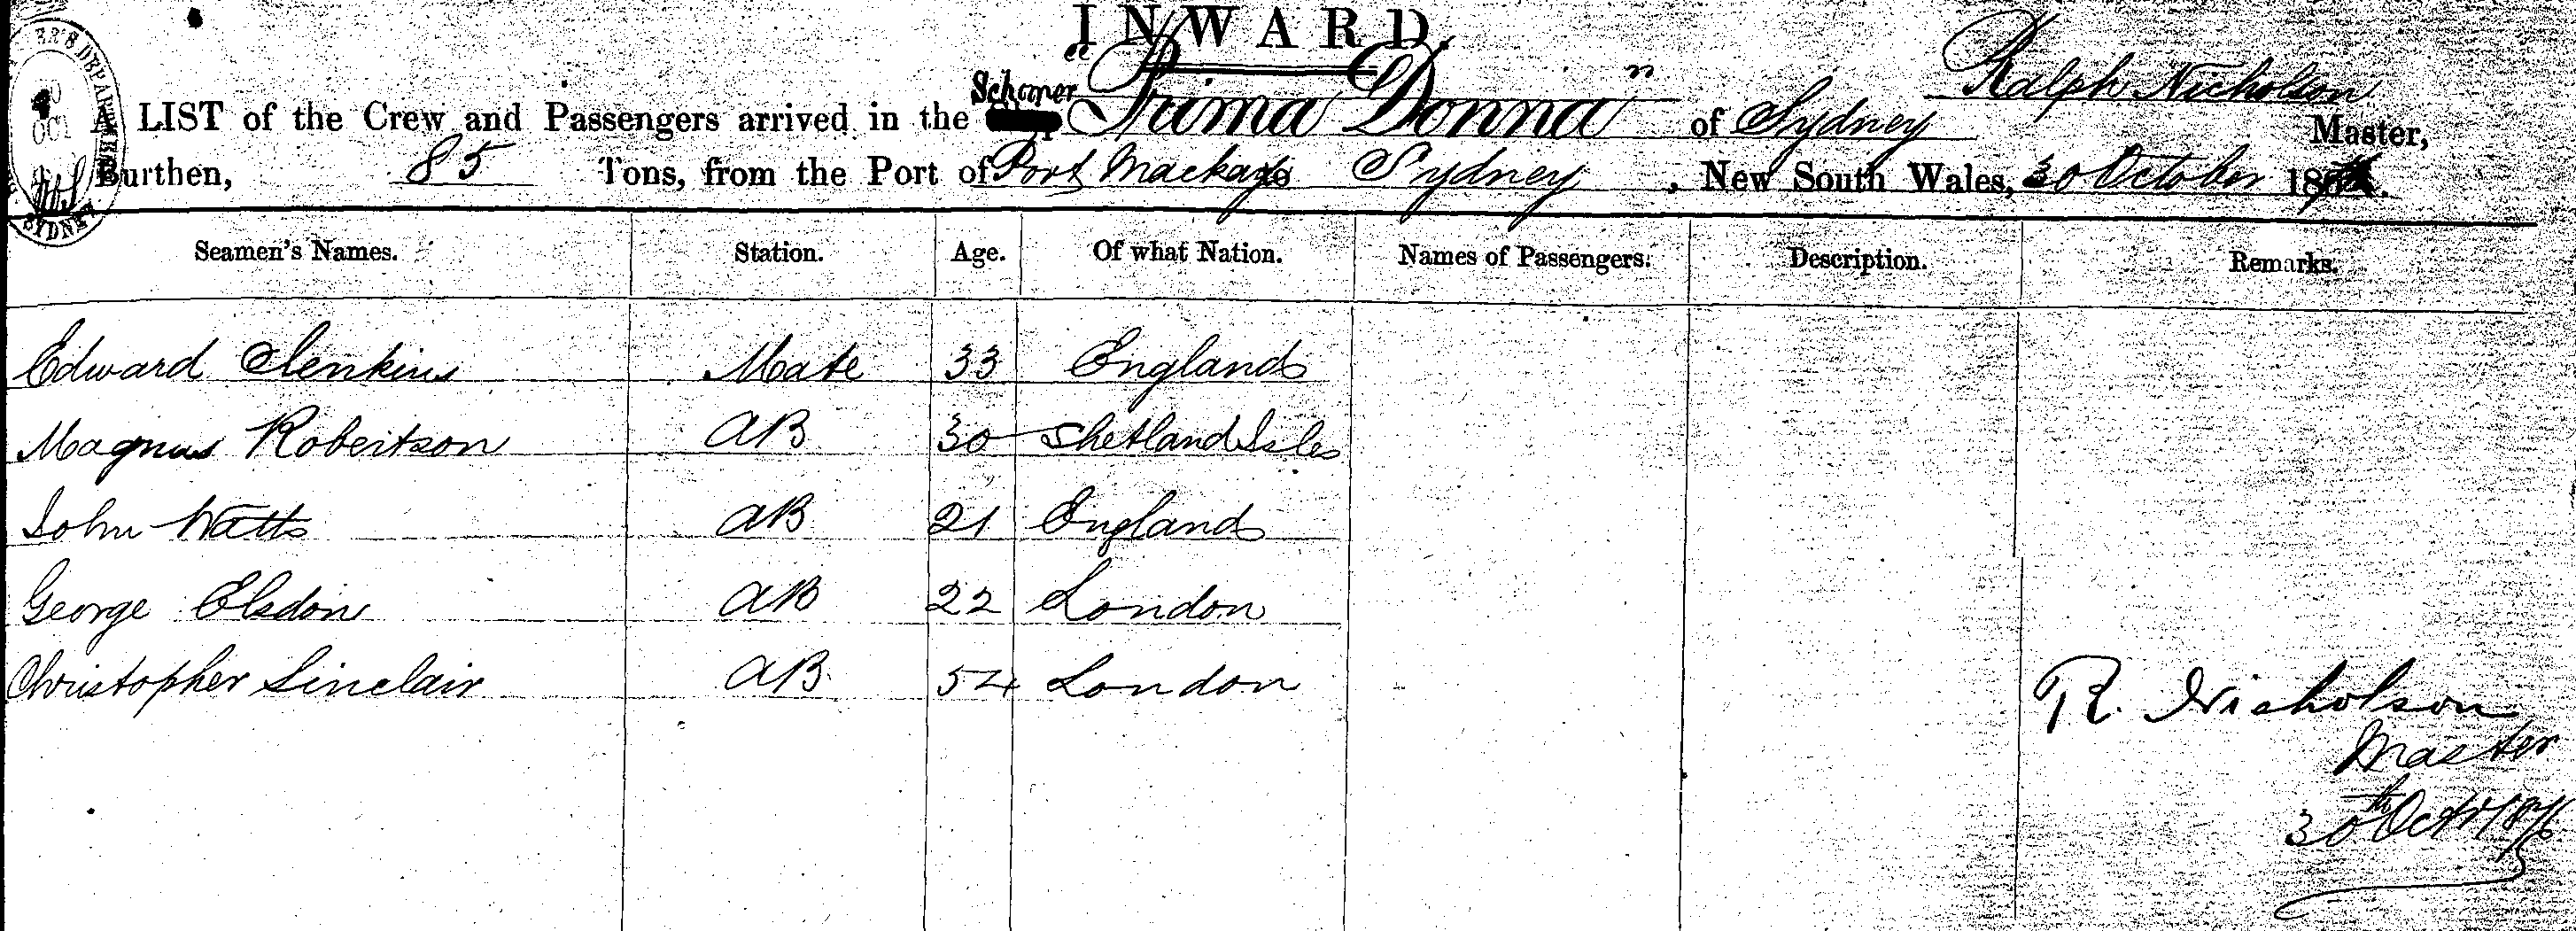 INWARD.
A LIST of the Crew and Passengers arrived in the Schooner "Prima Donna" of Sydney Ralph Nicholson Master,
Burthen, 85 Tons, from the Port of Port Mackay to Sydney, New South Wales, 30 October 187
Seamen's Names. Station. Age. Of what Nation. Names of Passengers. Description. Remarks.
Edward Jenkins Mate 33 England
Magnus Robertson AB 30 Shetland Isles
John Watts AB 21 England
George Elsdon AB 22 London
Christopher Sinclair AB 54 London
R. Nicholson
Master
30th Octr 1876
OCT
SYDNEY